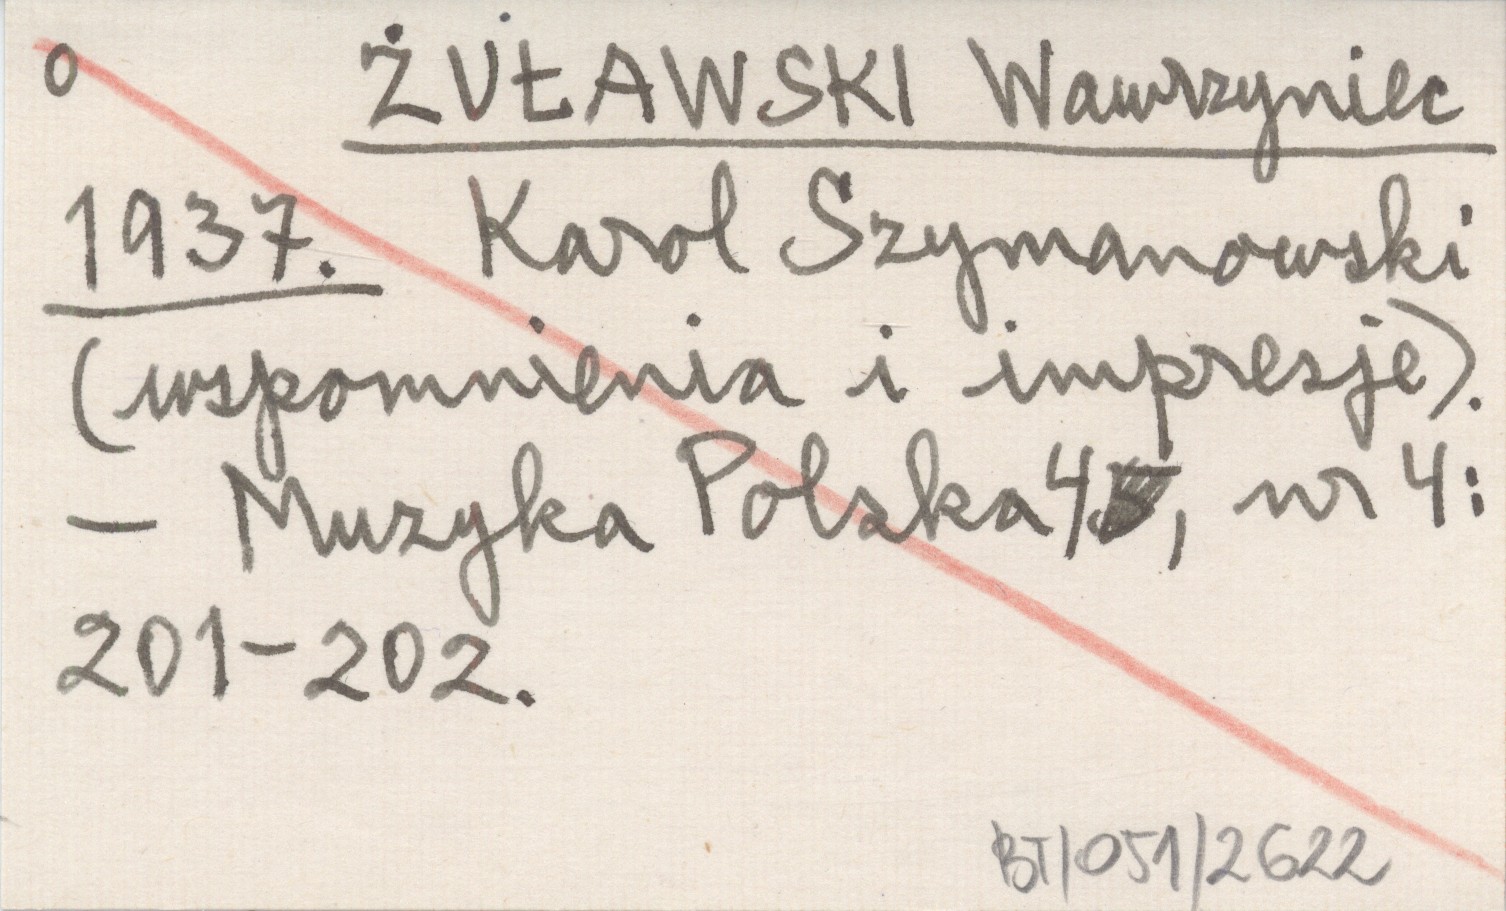 o ŻUŁAWSKI Wawrzyniec
1937. Karol Szymanowski
(wspomnienia i impresje).
- Muzyka Polska 4, nr 4:
201-202.
BT/051/2622